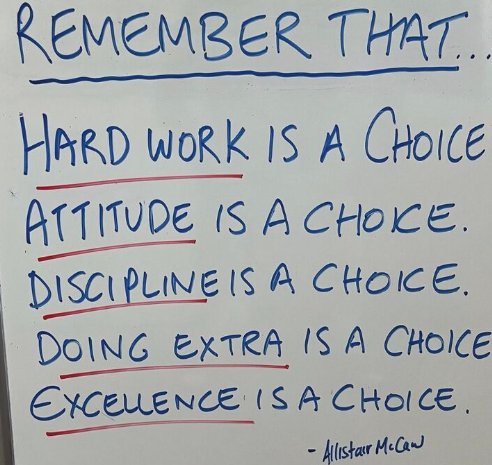 REMEMBER THAT...
HARD WORK IS A CHOICE
ATTITUDE IS A CHOICE.
DISCIPLINE IS A CHOICE.
DOING EXTRA IS A CHOICE
EXCELLENCE IS A CHOICE.
- Allistair McCaw